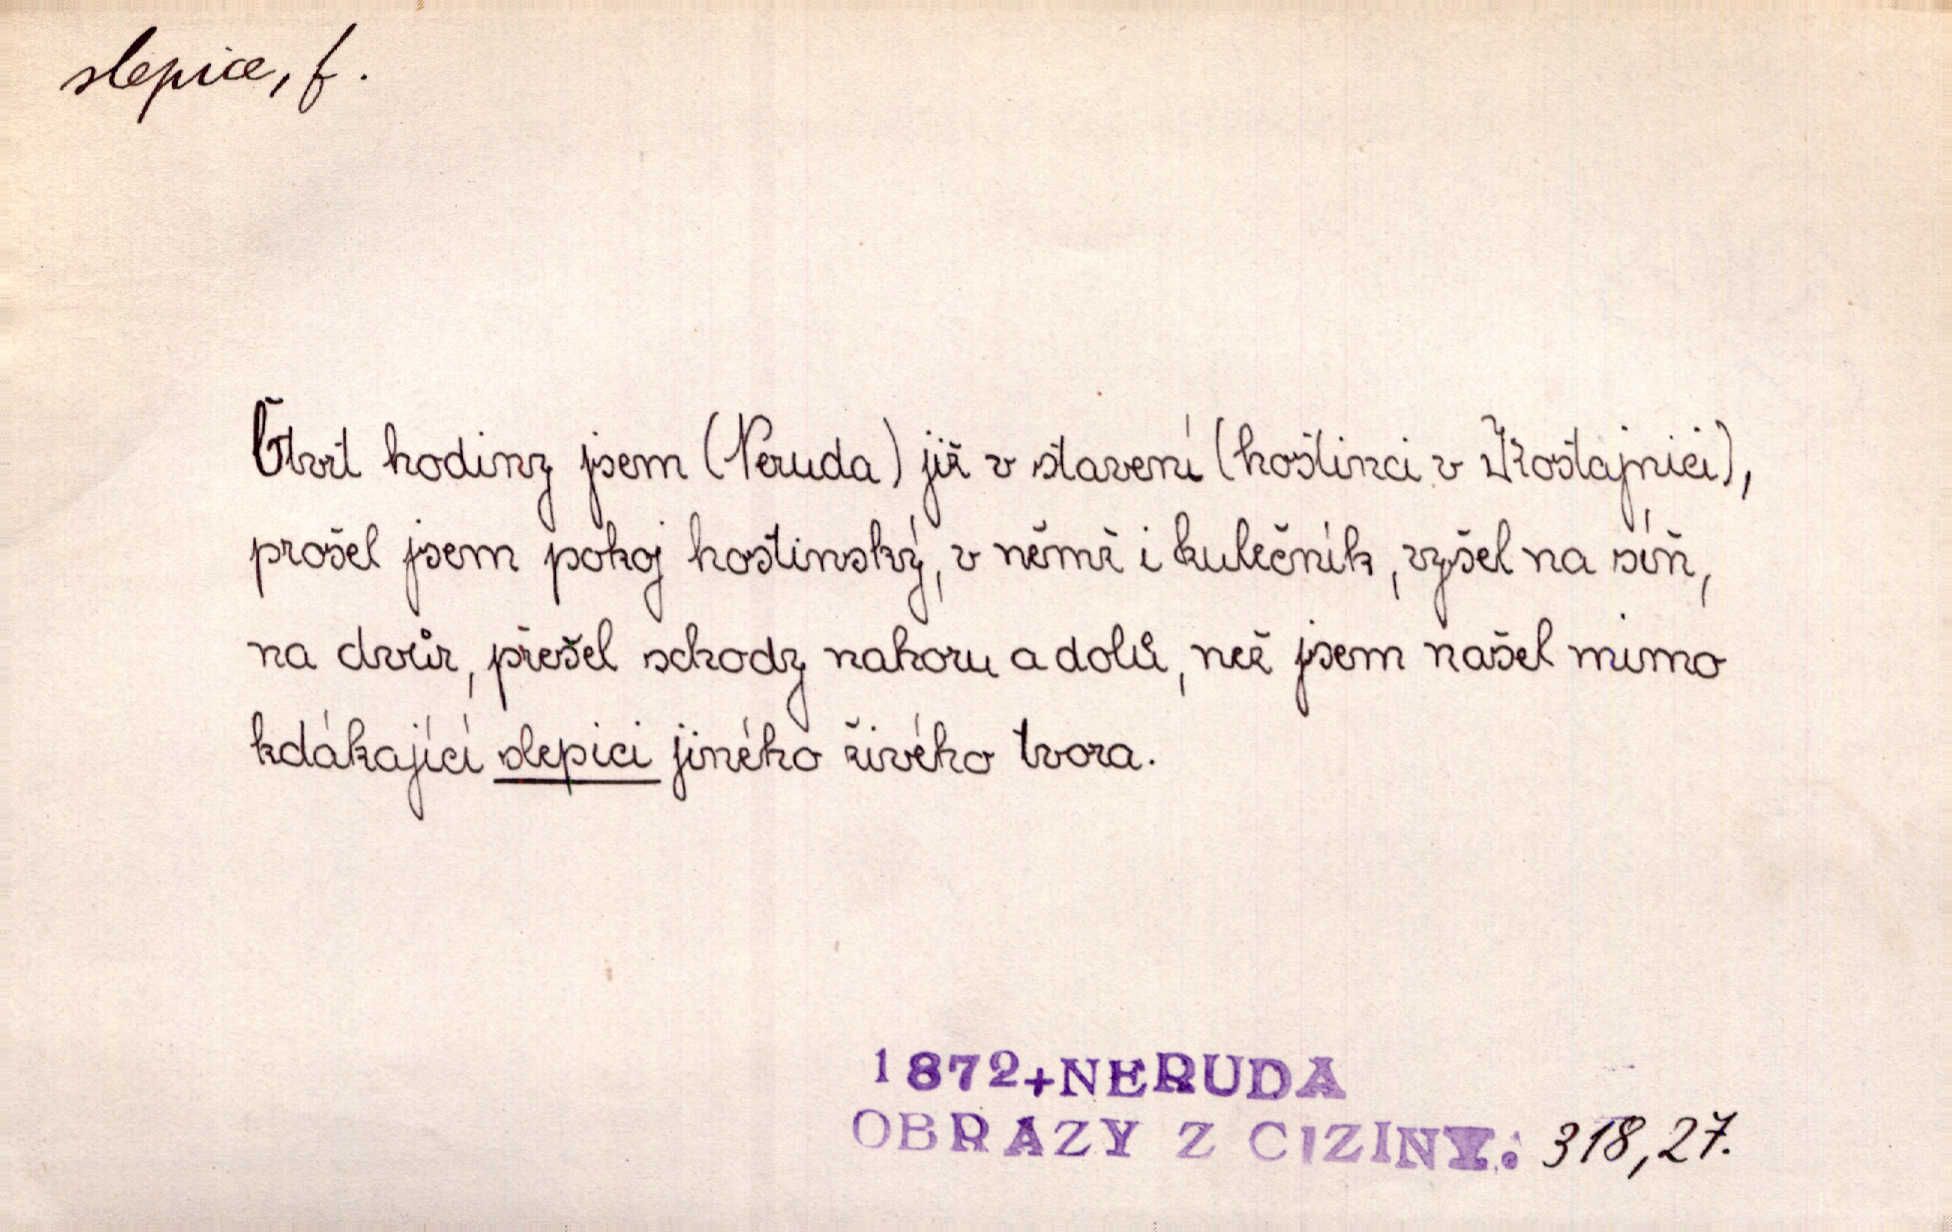 slepice, f.
Čtvrt hodiny jsem (Neruda) již v stavení (hostinci v Kostajnici),
prošel jsem pokoj hostinský, v němž i kulečník, vyšel na síň,
na dvůr, přešel schody nahoru a dolů, než jsem našel mimo
kdákající slepici jiného živého tvora.
1872+NERUDA
OBRAZY Z CIZINY: 318,27.